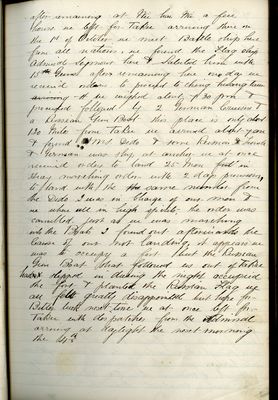 after remaining at Wei hai Wei a few
hours we left for Taku arriving there on
the 1st of October we met Battle ships there
from all nations, we found the Flag ship
Admiral Seymour here & Saluted him with
15 Guns after remaining here one day we
received orders to proceed to
at 7.30 pm we
proceeded followed by 2 German Cruisers &
a Russian Gun Boat this place is only about
120 Miles from Taku we arrived about
& found HMS Dido & some Russian & French
& German was ships at anchor we at once
received orders to land 25 Men full in
Heavy marching order with 2 days provisions
to land with the same number from
the Dido I was in charge of our men &
we where all in high spirits the order was
cancelled just as we were marching
into the Boats I found out afterwards the
Cause of our not landing, it appears we
was to occupy a fort but the Russian
Gun Boat that followed us out of Taku
had slipped in during the night occupied
the fort & planted the Russian Flag we
are all greatly disappointed but hope for
Better luck next time we at once left for
Taku with despatches for the Admiral
arriving at daylight the next morning
the 4th